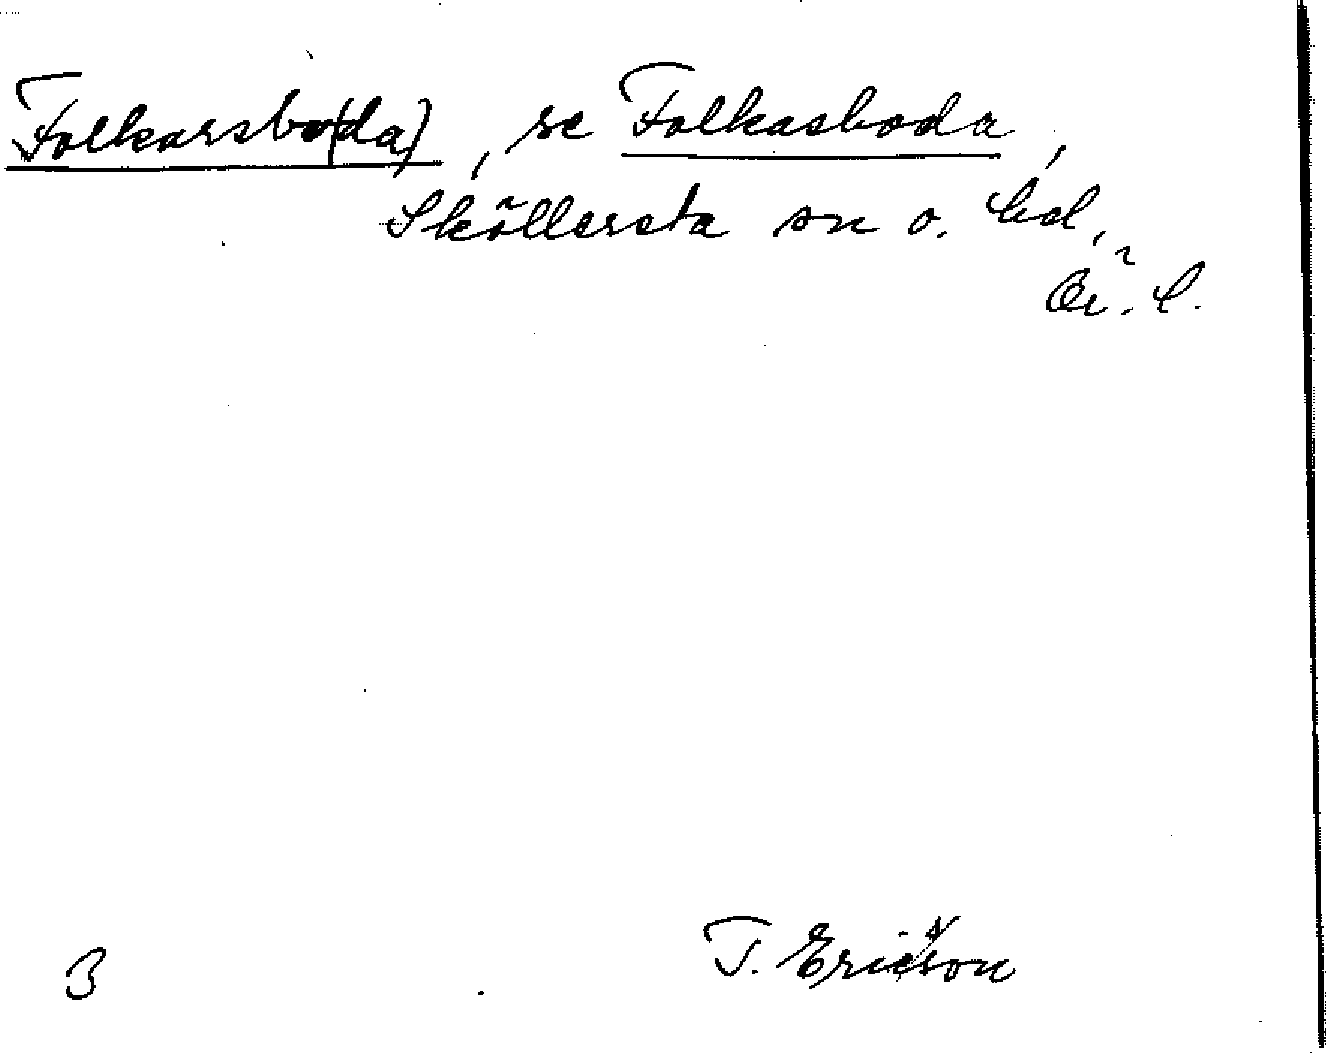 Folkarsbo(da), se Folkasboda,
Sköllersta sn o. hd,
Ör. l.
3 T. Ericsson